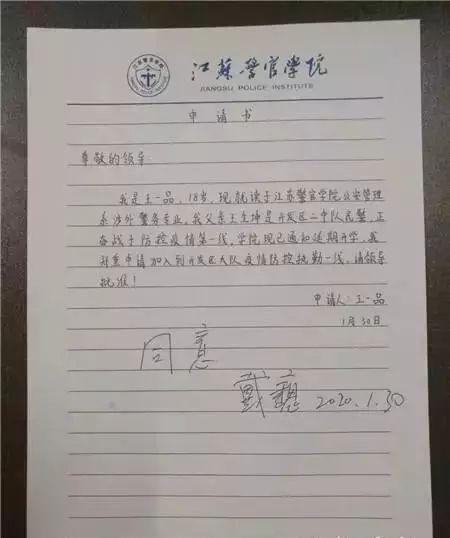 江苏警官学院
JIANGSU POLICE INSTITUTE
申请书
尊敬的领导:
我是王一品,18岁,现就读于江苏警官学院公安管理
系涉外警务专业,我父亲王玉坤是开发区二中队民警,正
奋战于防控疫情第一线,学院现已通知延期开学,我
郑重申请加入到开发区大队疫情防控执勤一线,请领导
批准!
申请人:王一品
1月30日
同意
戴 2020.1.30